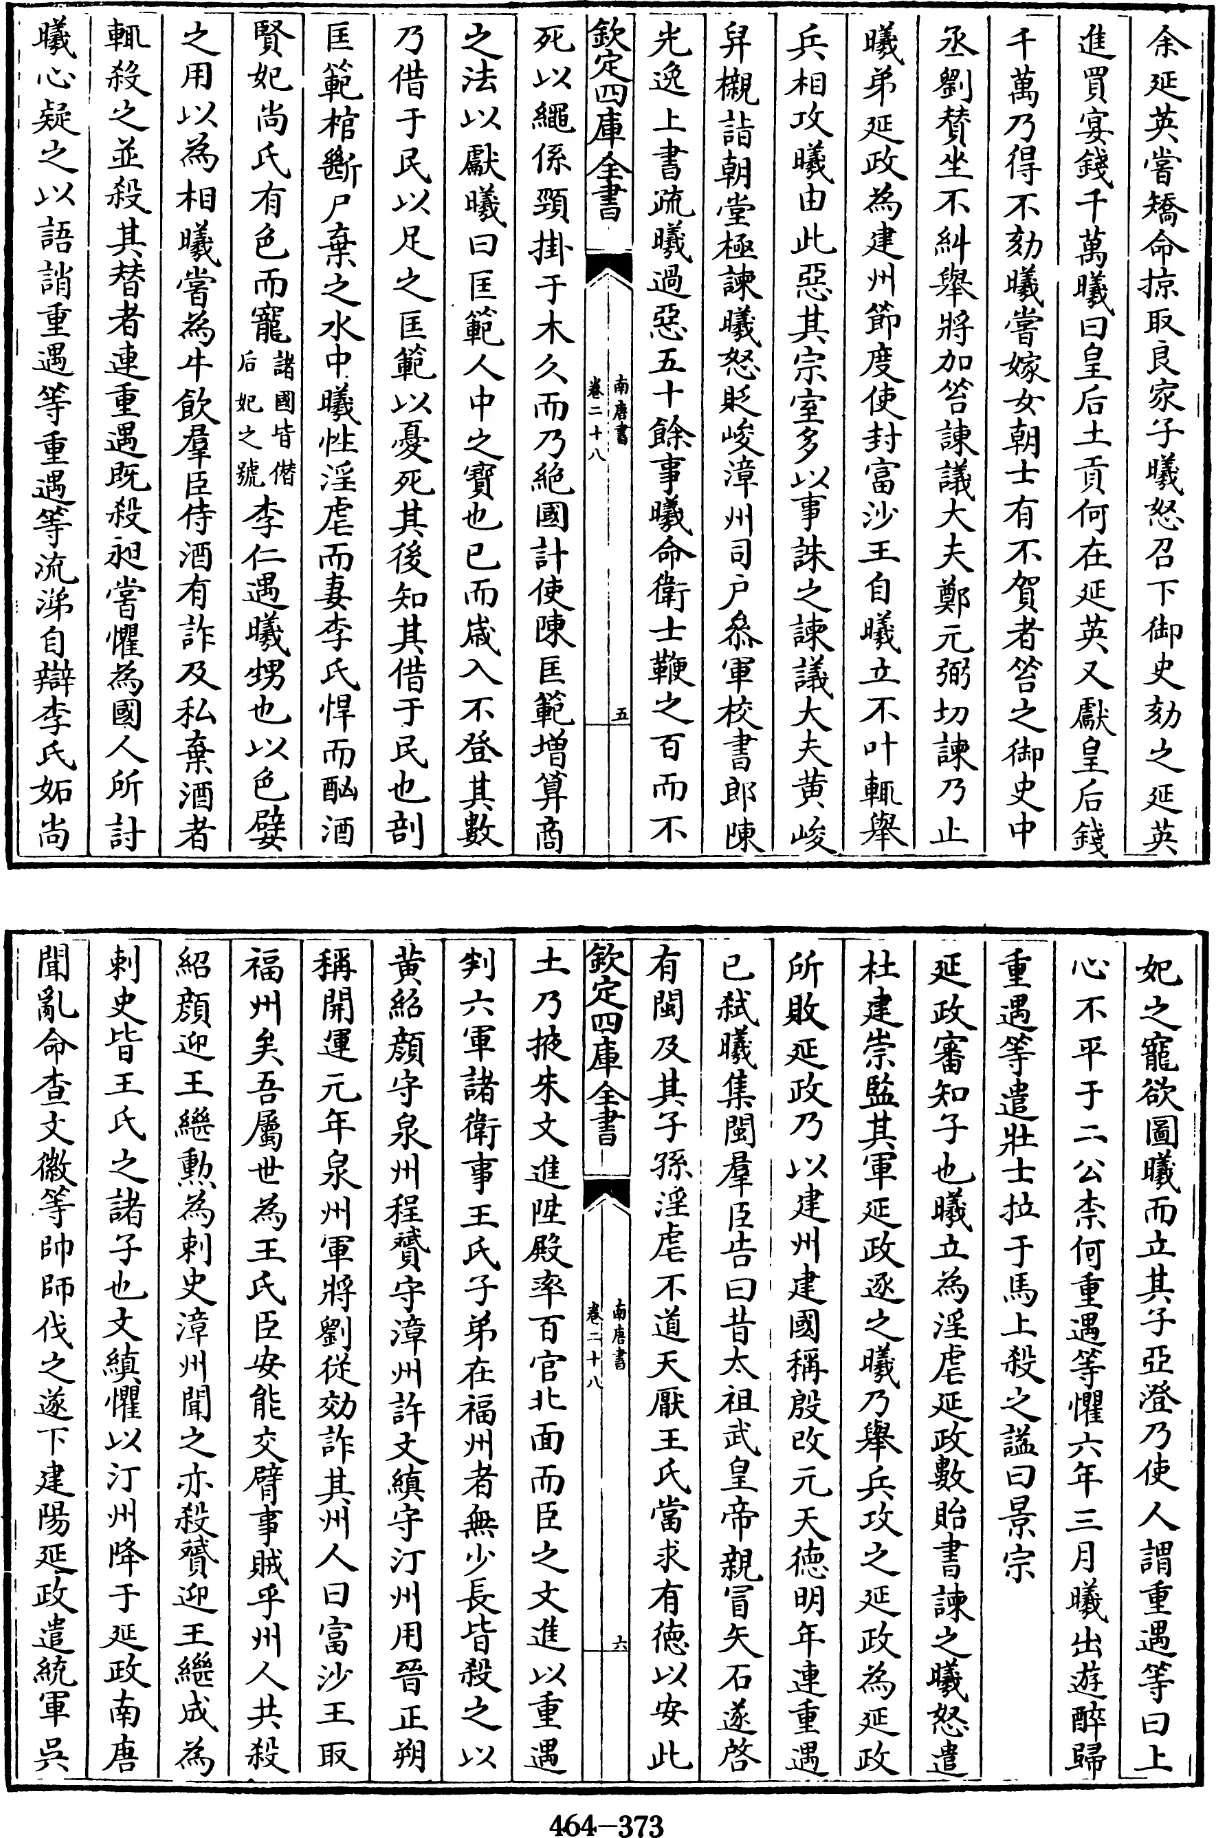 余延英嘗矯命掠取良家子曦怒召下御史劾之延英
進買宴錢千萬曦曰皇后土貢何在延英又獻皇后錢
千萬乃得不劾曦嘗嫁女朝士有不賀者笞之御史中
丞劉贊坐不糾舉將加笞諫議大夫鄭元弼切諫乃止
曦弟延政為建州節度使封富沙王自曦立不叶輒舉
兵相攻曦由此惡其宗室多以事誅之諫議大夫黄峻
舁櫬詣朝堂極諫曦怒貶峻漳州司户叅軍校書郎陳
光逸上書疏曦過惡五十餘事曦命衛士鞭之百而不
欽定四庫全書
南唐書
卷二十八
五
死以繩係頸掛于木久而乃絶國計使陳匡範増算商
之法以獻曦曰匡範人中之寳也已而歲入不登其數
乃借于民以足之匡範以憂死其後知其借于民也剖
匡範棺斷尸棄之水中曦性淫虐而妻李氏悍而酗酒
賢妃尚氏有色而寵諸國皆僭后妃之號李仁遇曦甥也以色嬖
之用以為相曦嘗為牛飲羣臣侍酒有詐及私棄酒者
輒殺之並殺其替者連重遇既殺昶嘗懼為國人所討
曦心疑之以語誚重遇等重遇等流涕自辯李氏妬尚
妃之寵欲圖曦而立其子亞澄乃使人謂重遇等曰上
心不平于二公柰何重遇等懼六年三月曦出遊醉歸
重遇等遣壯士拉于馬上殺之諡曰景宗
延政審知子也曦立為淫虐延政數貽書諫之曦怒遣
杜建崇監其軍延政逐之曦乃舉兵攻之延政為延政
所敗延政乃以建州建國稱殷改元天徳明年連重遇
已弑曦集閩羣臣告曰昔太祖武皇帝親冒矢石遂啓
有閩及其子孫淫虐不道天厭王氏當求有徳以安此
欽定四庫全書
南唐書
卷二十八
六
土乃掖朱文進陞殿率百官北面而臣之文進以重遇
判六軍諸衛事王氏子弟在福州者無少長皆殺之以
黄紹頗守泉州程贇守漳州許文縝守汀州用晉正朔
稱開運元年泉州軍將劉從効詐其州人曰富沙王取
福州矣吾屬世為王氏臣安能交臂事賊乎州人共殺
紹頗迎王繼勲為刺史漳州聞之亦殺贇迎王繼成為
刺史皆王氏之諸子也文縝懼以汀州降于延政南唐
聞亂命查文徽等帥師伐之遂下建陽延政遣統軍吳
464-373